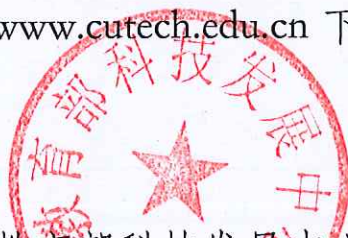 www.cutech.edu.cn 下
教育部科技发展中
教育部科技发展中